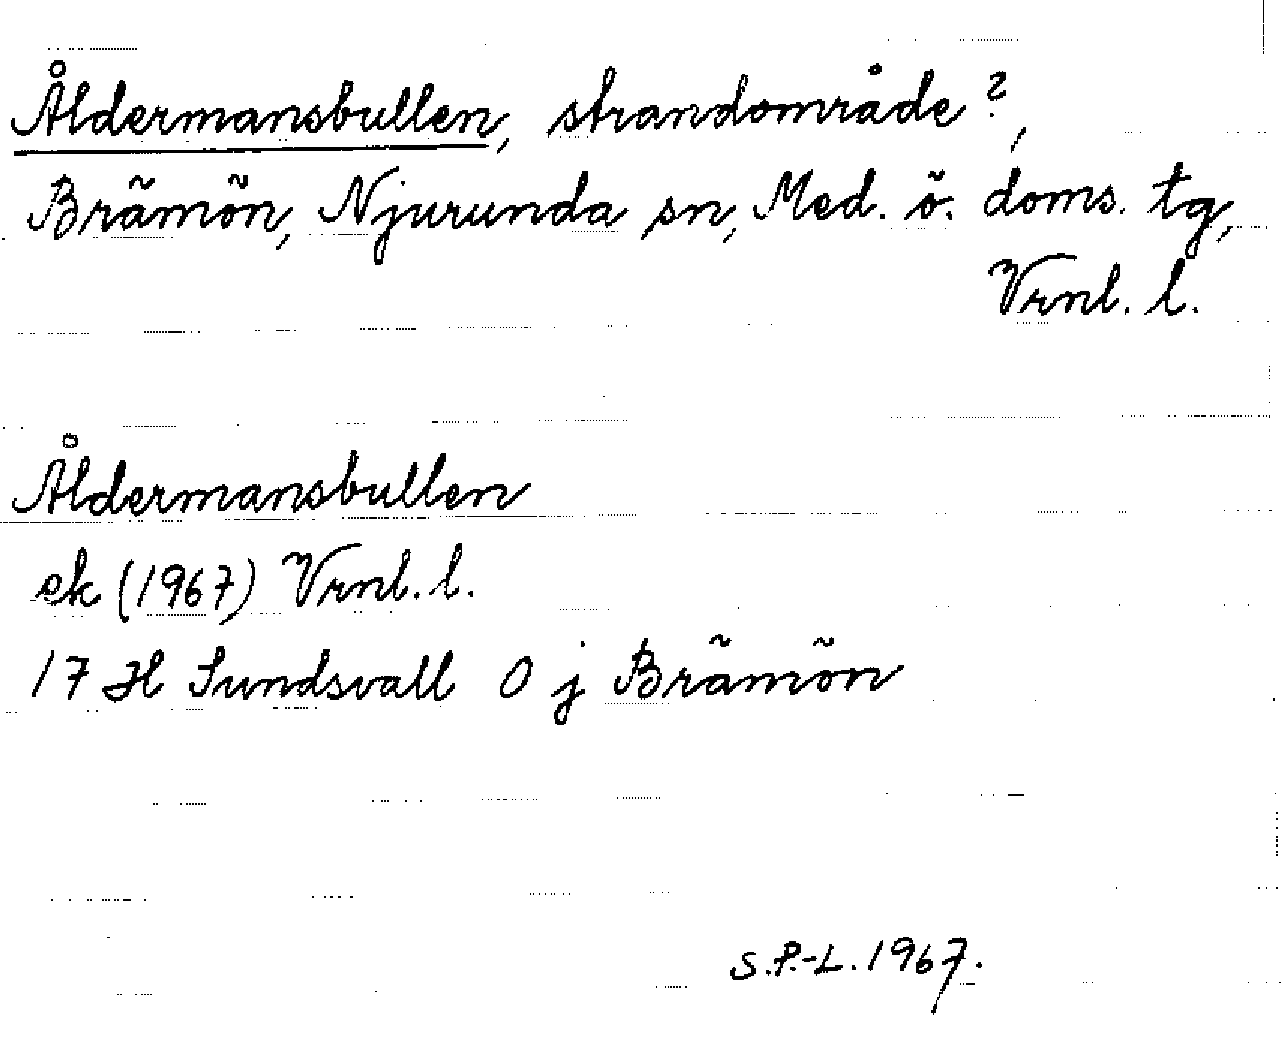 Åldermansbullen, strandområde?,
Brämön, Njurunda sn, Med. ö. doms. tg,
Vrnl. l.
Åldermansbullen
ek (1967) Vrnl. l.
17 H Sundsvall O j Brämön
S.P.-L. 1967.